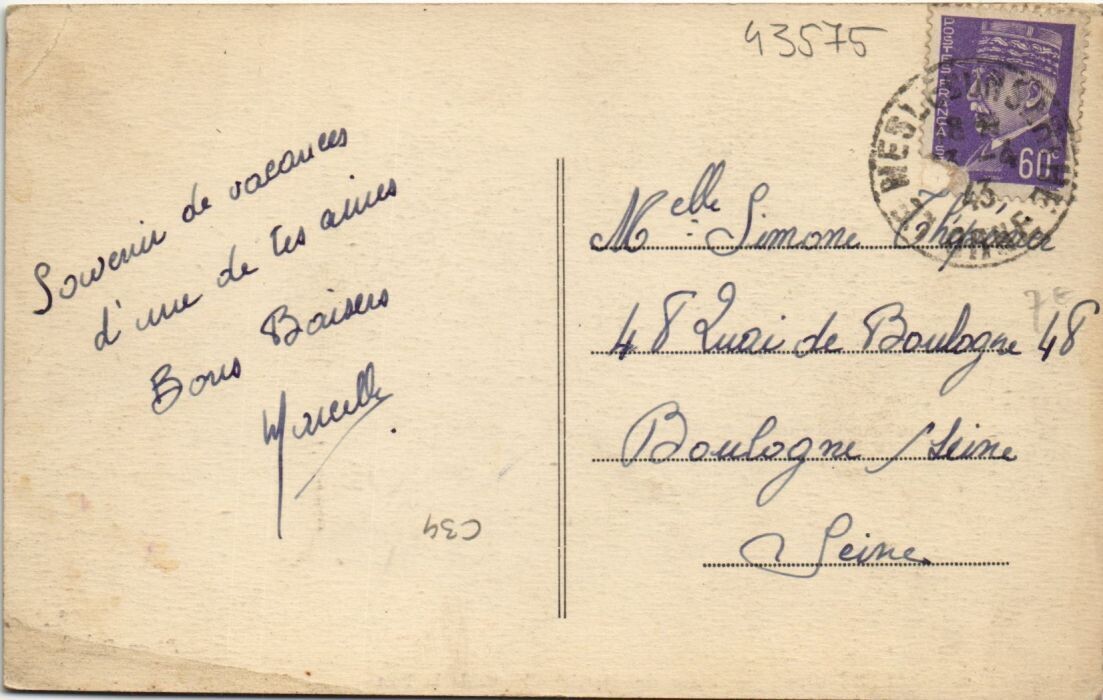 43575
POSTES FRANÇAISES
60c
LE MESLE SUR SARTHE
43
ORNE
Souvenir de vacances
d'une de tes amies
Bons Baisers
Marcelle
C34
Melle Simone
48 Quai de Boulogne 48
7€
Boulogne s/Seine
Seine